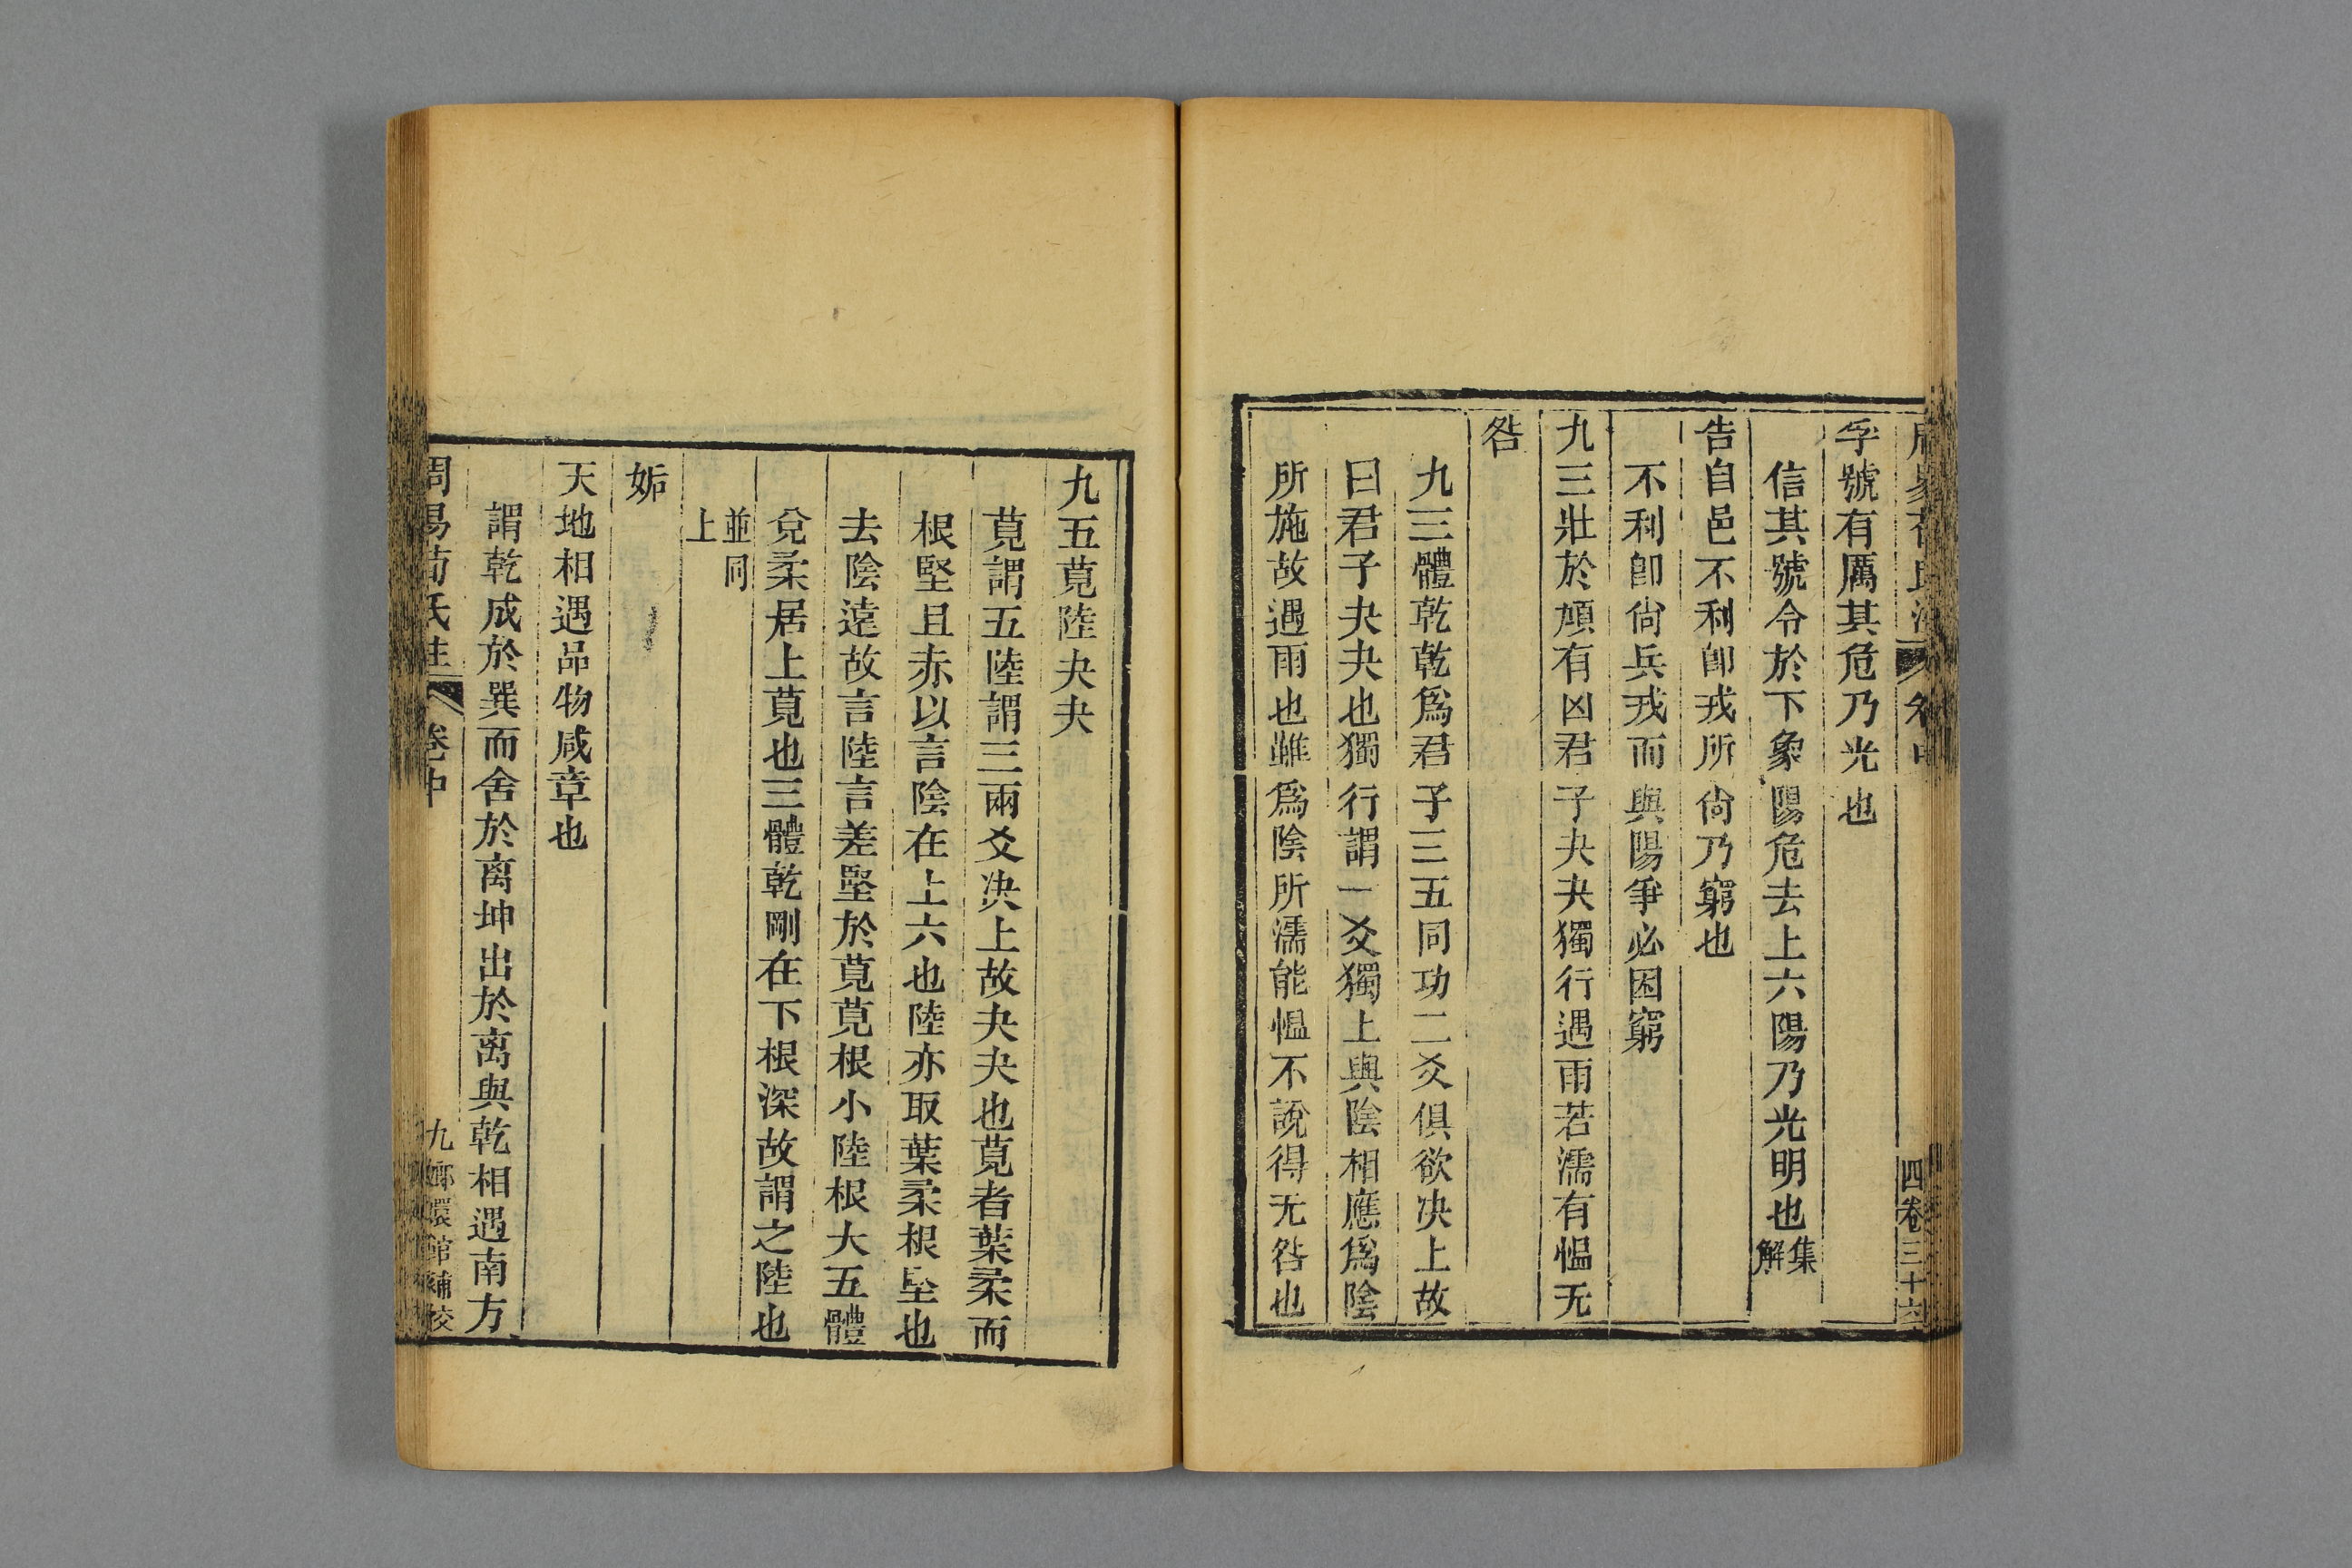 孚號有厲其危乃光也
信其號令於下象陽危去上六陽乃光明也集解
告自邑不利卽戎所尙乃窮也
不利卽尙兵戎而與陽爭必困窮
九三壯於頄有凶君子夬夬獨行遇雨若濡有慍无
咎
九三體乾乾爲君子三五同功二爻俱欲决上故
曰君子夬夬也獨行謂一爻獨上與陰相應爲陰
所施故遇雨也雖爲陰所濡能慍不說得无咎也
四卷三十六
九五莧陸夬夬
莧謂五陸謂三兩爻决上故夬夬也莧者葉柔而
根堅且赤以言陰在上六也陸亦取葉柔根堅也
去陰遠故言陸言差堅於莧莧根小陸根大五體
兌柔居上莧也三體乾剛在下根深故謂之陸也
並同上
姤
天地相遇品物咸章也
謂乾成於巽而舍於离坤出於离與乾相遇南方
周易荀氏注 卷中
九嫏嬛館補校